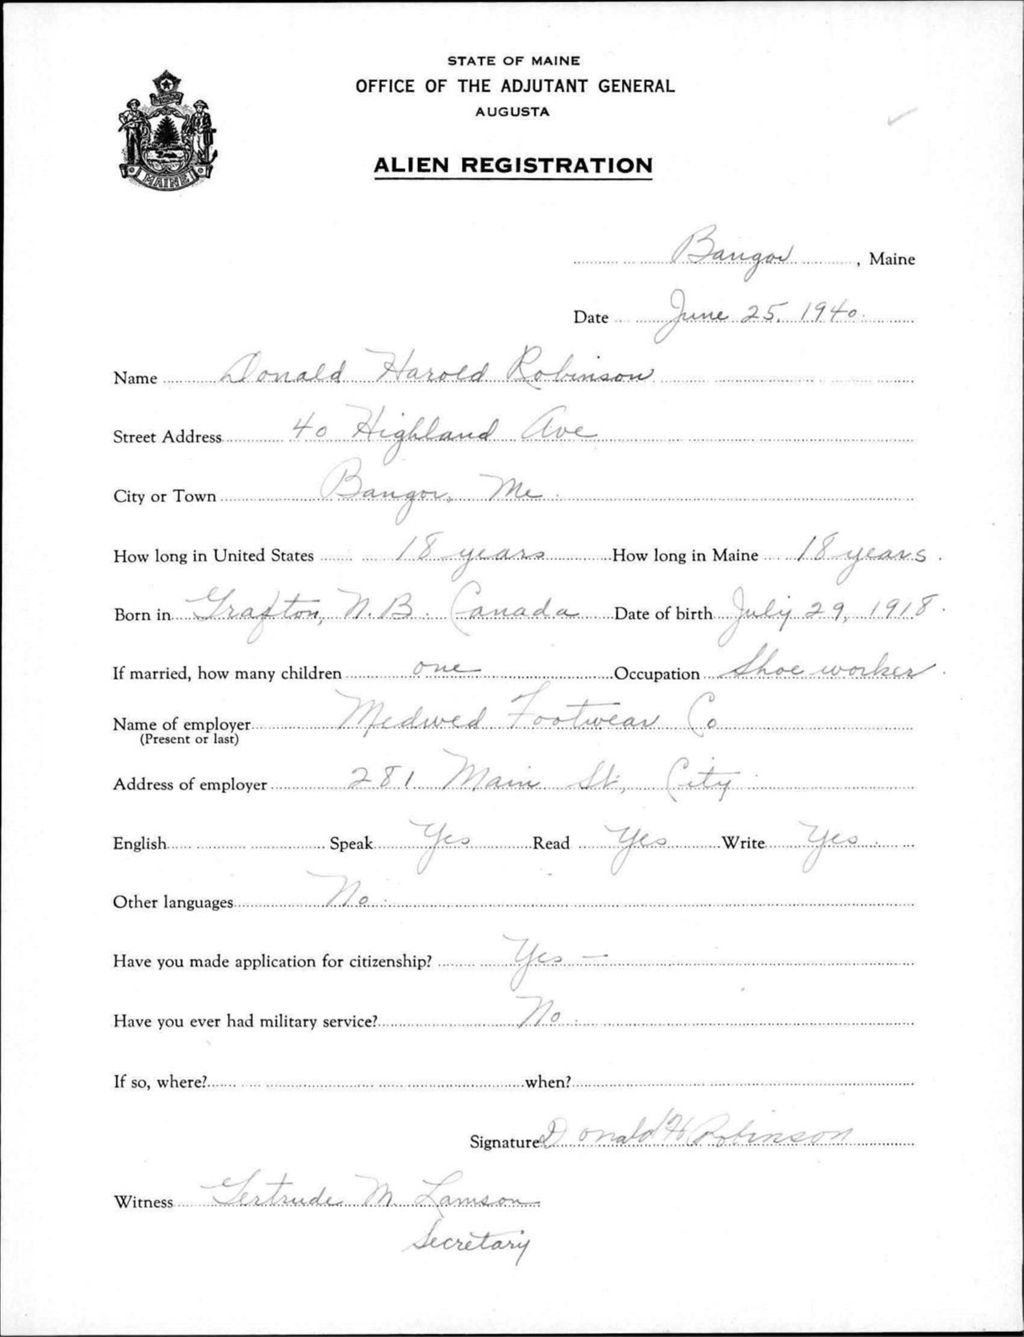 STATE OF MAINE
OFFICE OF THE ADJUTANT GENERAL
AUGUSTA
ALIEN REGISTRATION
MAINE
Bangor, Maine
Date June 25, 1940
Name Donald Harold Robinson
Street Address 40 Highland Ave
City or Town Bangor, Me.
How long in United States 18 years How long in Maine 18 years.
Born in Grafton, N.B. Canada Date of birth July 29, 1918.
If married, how many children one Occupation Shoe worker.
Name of employer Medwed Footwear Co
(Present or last)
Address of employer 281 Main St., City
English Speak Yes Read Yes Write Yes
Other languages No.
Have you made application for citizenship? Yes —
Have you ever had military service? No.
If so, where? when?
Signature Donald H Robinson
Witness Gertrude M. Lamson
Secretary